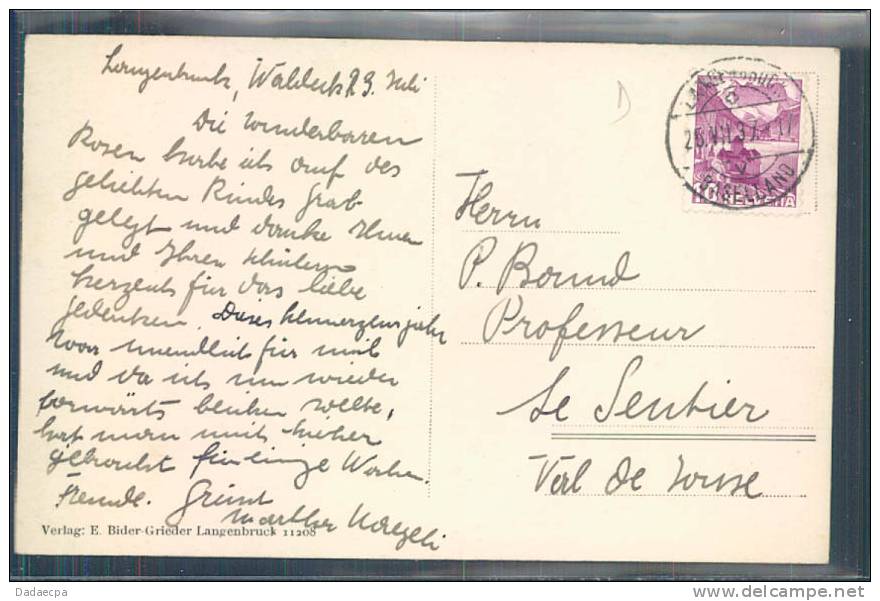 Langenbruck, Waldeck 23. Juli
Die wunderbaren
Rosen habe ich auf des
geliebten Kindes Grab
gelegt und danke Ihnen
und Ihren Schülern
herzlich für das liebe
Gedenken. Dieses Schmerzensjahr
war unendlich für mich
und da ich nun wieder
vorwärts blicken sollte,
hat man mich hieher
gebracht für einige Wochen.
Freundl. Grüsst
Marthe Naegeli
Verlag: E. Bider-Grieder Langenbruck 11208
D
LANGENBRUCK
VII.37
BASELLAND
HELVETIA
Herrn
P. Bound
Professeur
Le Sentier
Val de Joux
Dadaecpa
www.delcampe.net